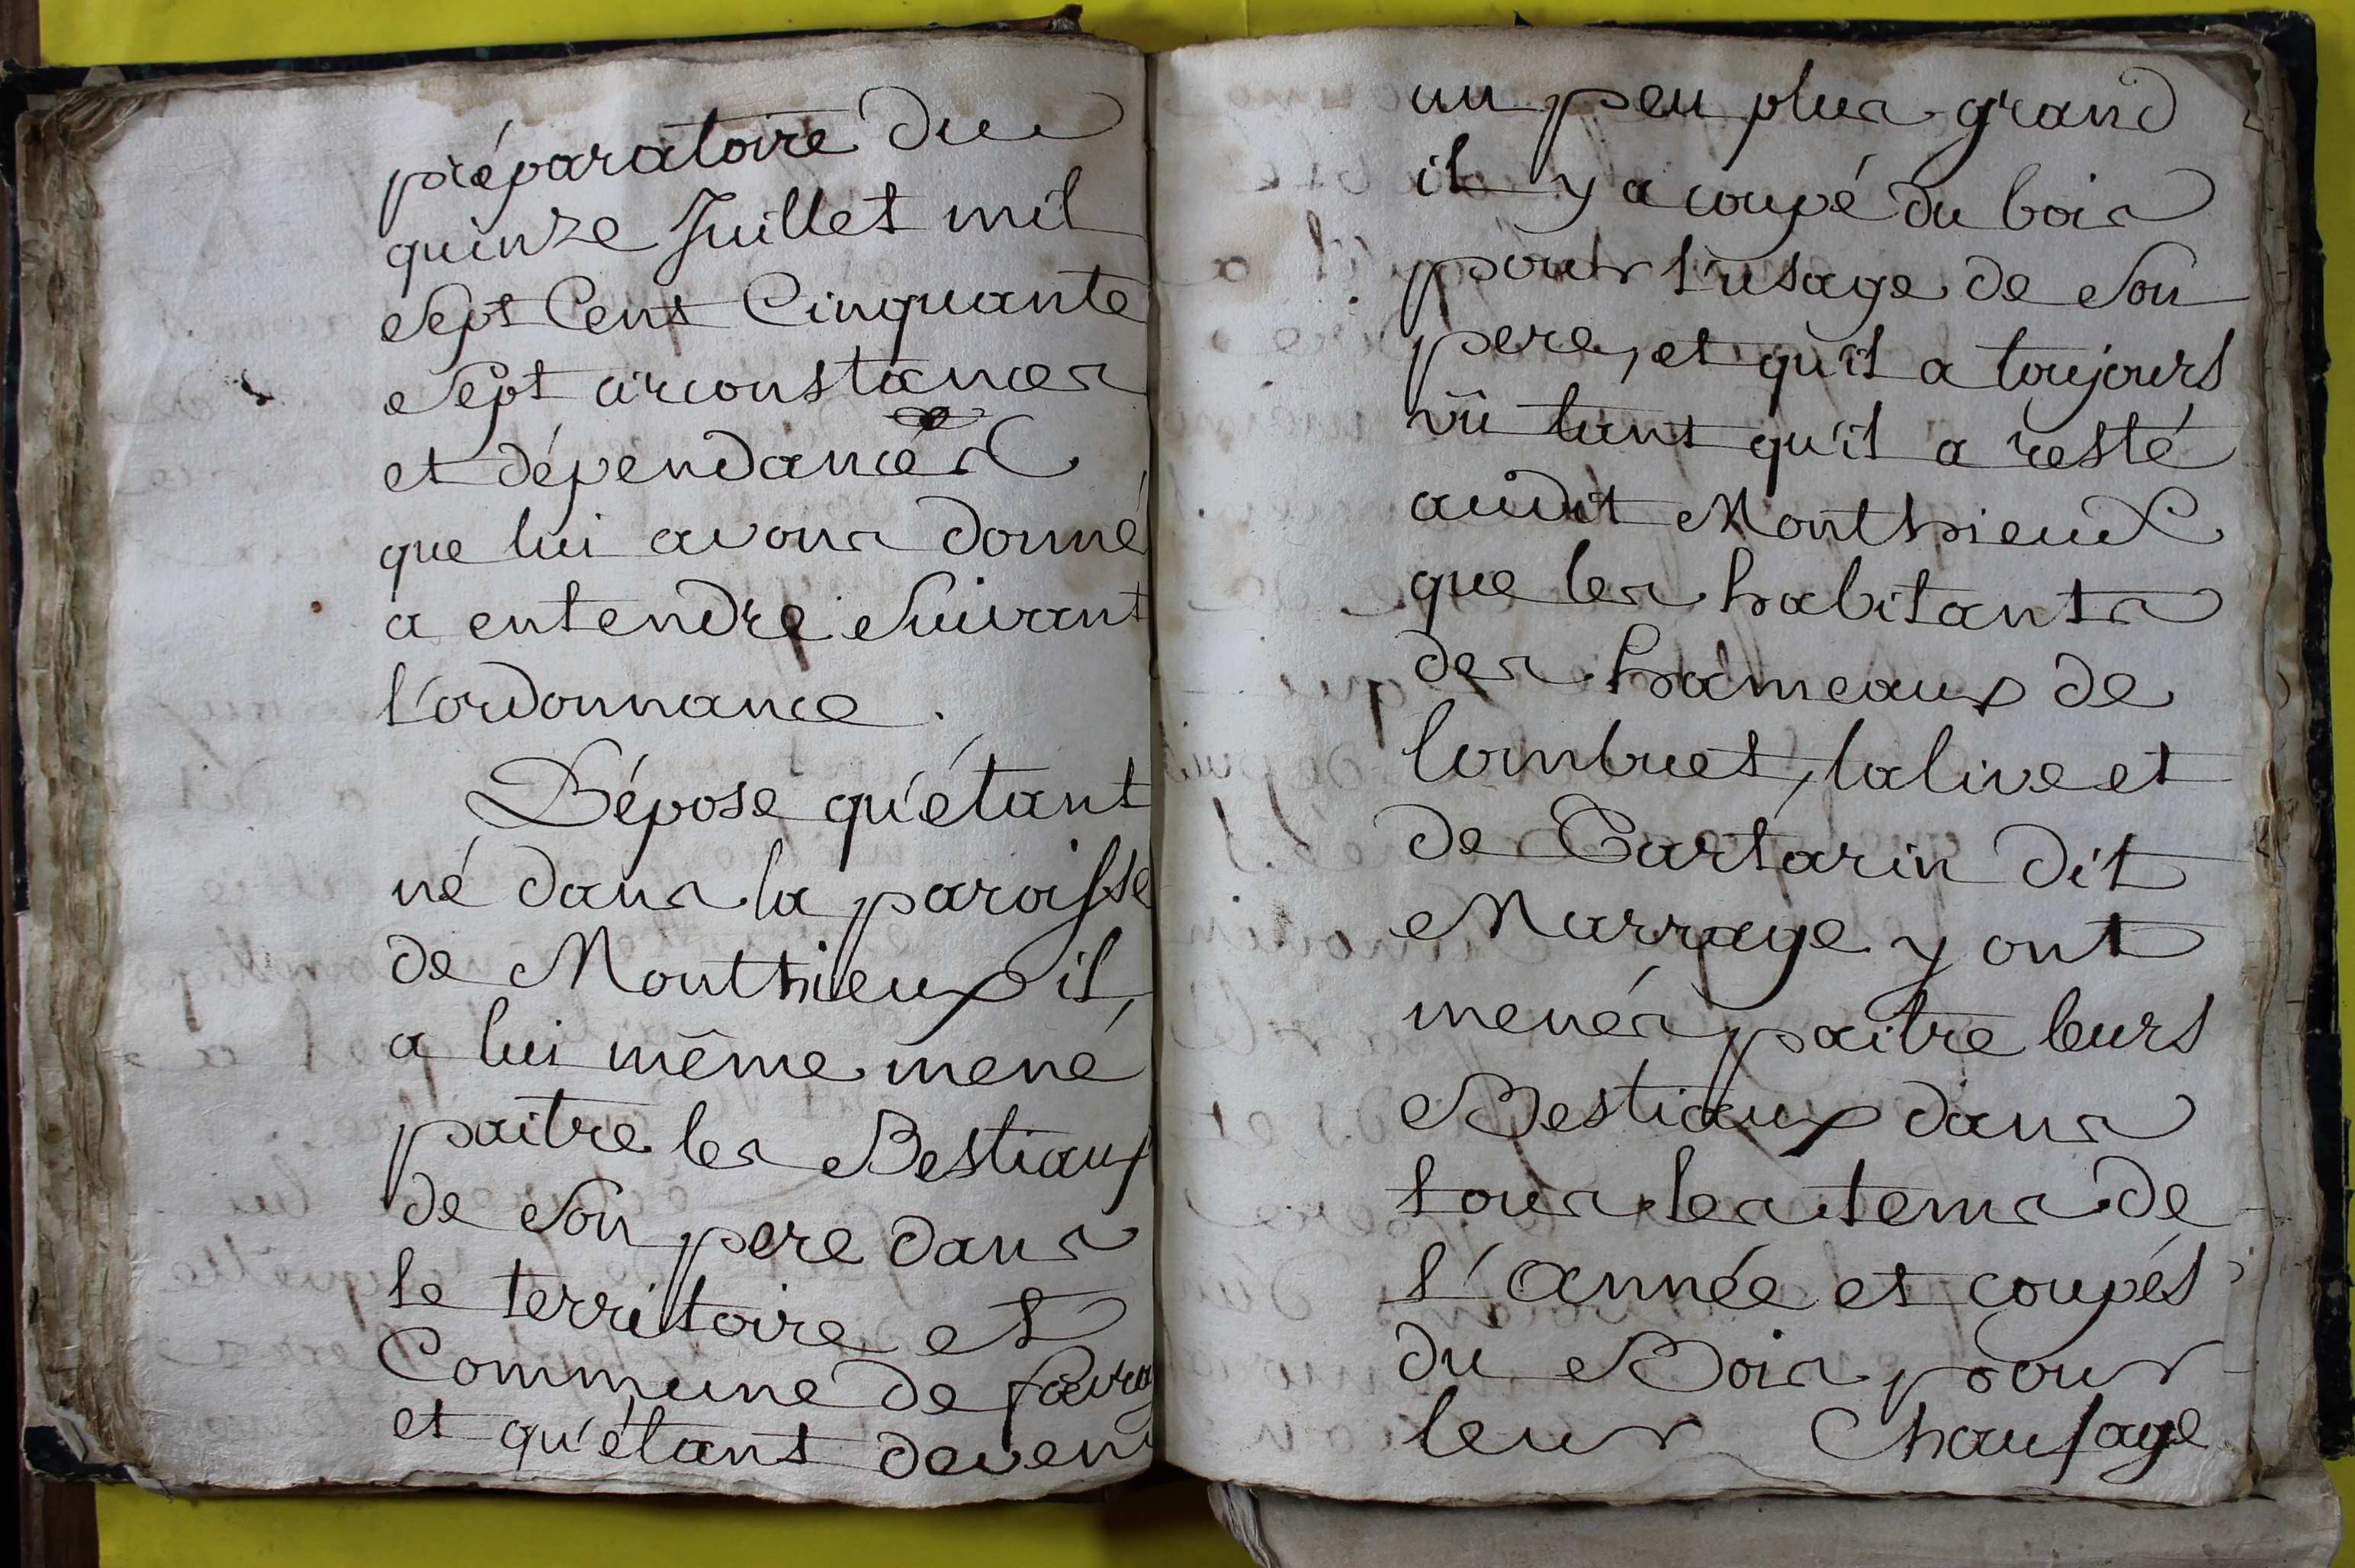 préparatoire du
quinze Juillet mil
Sept Cens Cinquante
Sept circonstances
et dépendances
que lui avons donné
a entendre Suivant
l'ordonnance.
Dépose qu'étant
né dans la paroisse
de Monthieux il
a lui même mené
paitre les Bestiaux
de Son pere dans
le territoire et
Commune de
et qu'étant devenu
un peu plus grand
il y a coupé du bois
pour l'usage de Son
pere, et qu'il a toujours
vû tant qu'il a resté
audit Monthieux
que les habitants
des hameaux de
Lombuet, lalive et
de Tartarin dit
Marrage y ont
menés paitre leurs
Bestiaux dans
tous les tems de
l'année et coupés
du Bois pour
leur Chaufage